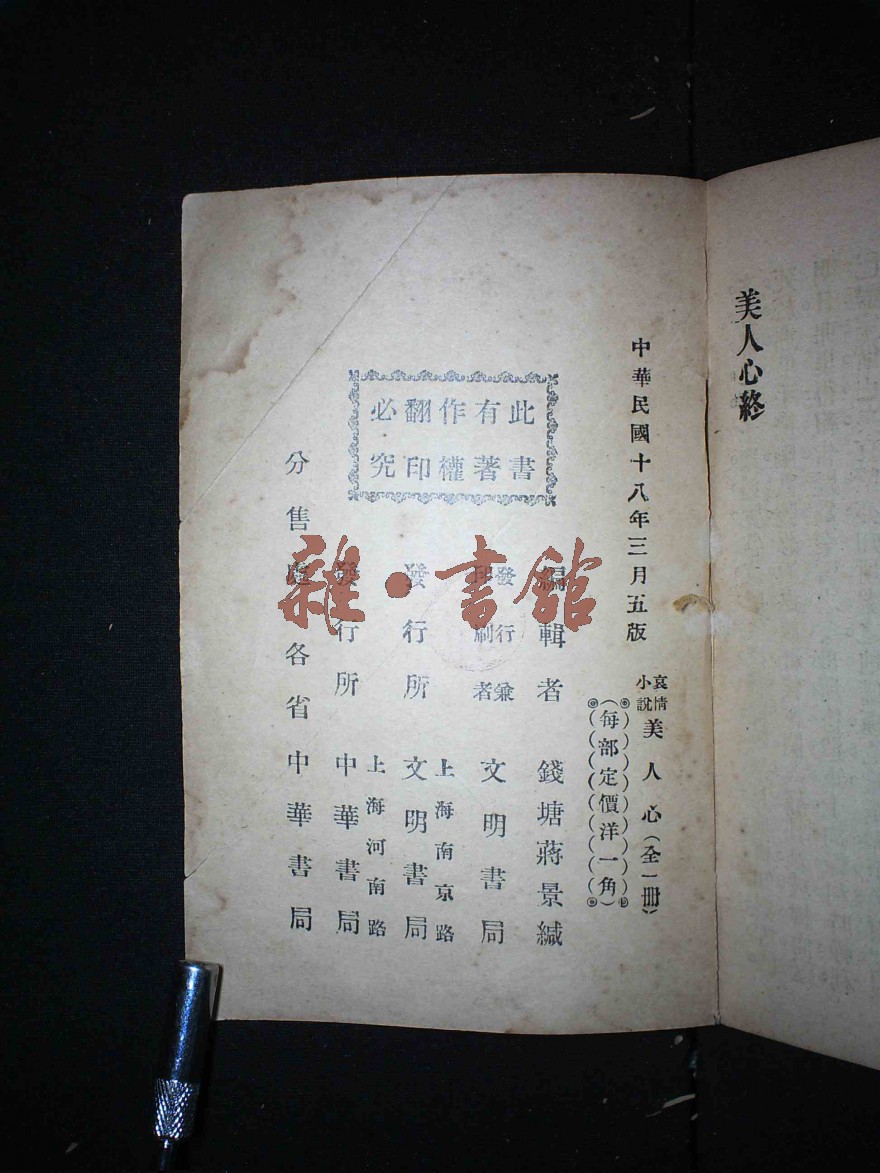 美人心終
中華民國十八年三月五版
哀情
小說
美人心（全一冊）
（每部定價洋一角）
此書
有著
作權
翻印
必究
編輯者 錢塘蔣景緘
發行兼
印刷者
文明書局
上海南京路
發行所 文明書局
上海河南路
發行所 中華書局
分售處 各省中華書局
雜·書館